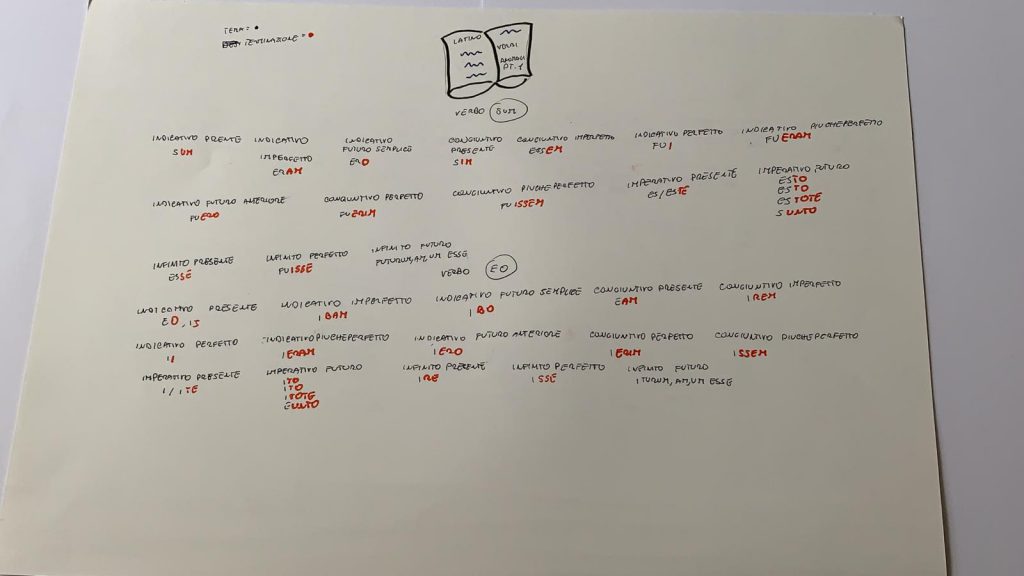 TEMA = •
DESI TERMINAZIONE = •
LATINO
VERBI
PT. 1
VERBO SUM
INDICATIVO PRENTE
SUM
INDICATIVO
IMPERFETTO
ERAM
INDICATIVO
FUTURO SEMPLICE
ERO
CONGIUNTIVO
PRESENTE
SIM
CONGIUNTIVO IMPERFETTO
ESSEM
INDICATIVO PERFETTO
FUI
INDICATIVO PIUCHEPERFETTO
FUERAM
INDICATIVO FUTURO ANTERIORE
FUERO
CONGIUNTIVO PERFETTO
FUERIM
CONGIUNTIVO PIUCHEPERFETTO
FUISSEM
IMPERATIVO PRESENTE
ES/ESTE
IMPERATIVO FUTURO
ESTO
ESTO
ESTOTE
SUNTO
INFINITO PRESENTE
ESSE
INFINITO PERFETTO
FUISSE
INFINITO FUTURO
FUTURUM, AM, UM ESSE
VERBO EO
INDICATIVO PRESENTE
EO, IS
INDICATIVO IMPERFETTO
IBAM
INDICATIVO FUTURO SEMPLICE
IBO
CONGIUNTIVO PRESENTE
EAM
CONGIUNTIVO IMPERFETTO
IREM
INDICATIVO PERFETTO
II
INDICATIVO PIUCHEPERFETTO
IERAM
INDICATIVO FUTURO ANTERIORE
IERO
CONGIUNTIVO PERFETTO
IERIM
CONGIUNTIVO PIUCHEPERFETTO
ISSEM
IMPERATIVO PRESENTE
I/ITE
IMPERATIVO FUTURO
ITO
ITO
ITOTE
EUNTO
INFINITO PRESENTE
IRE
INFINITO PERFETTO
ISSE
INFINITO FUTURO
ITURUM, AM, UM ESSE